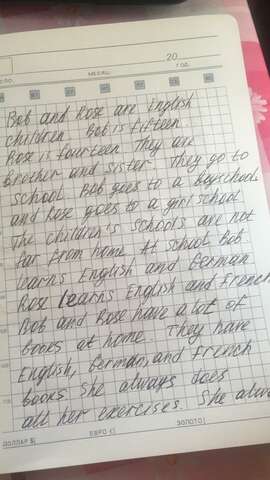 20
МЕСЯЦ
ГОД
Bob and Rose are English
children. Bob is fifteen.
Rose is fourteen. They are
brother and sister. They go to
school. Bob goes to a boy school
and Rose goes to a girl school.
The children's schools are not
far from home. At school Bob
learns English and German
Rose learns English and French
Bob and Rose have a lot of
books at home. They have
English, German, and French
books. She always does
all her exercises. She
ДОЛЛАР $|
ЕВРО €|
ЗОЛОТО|